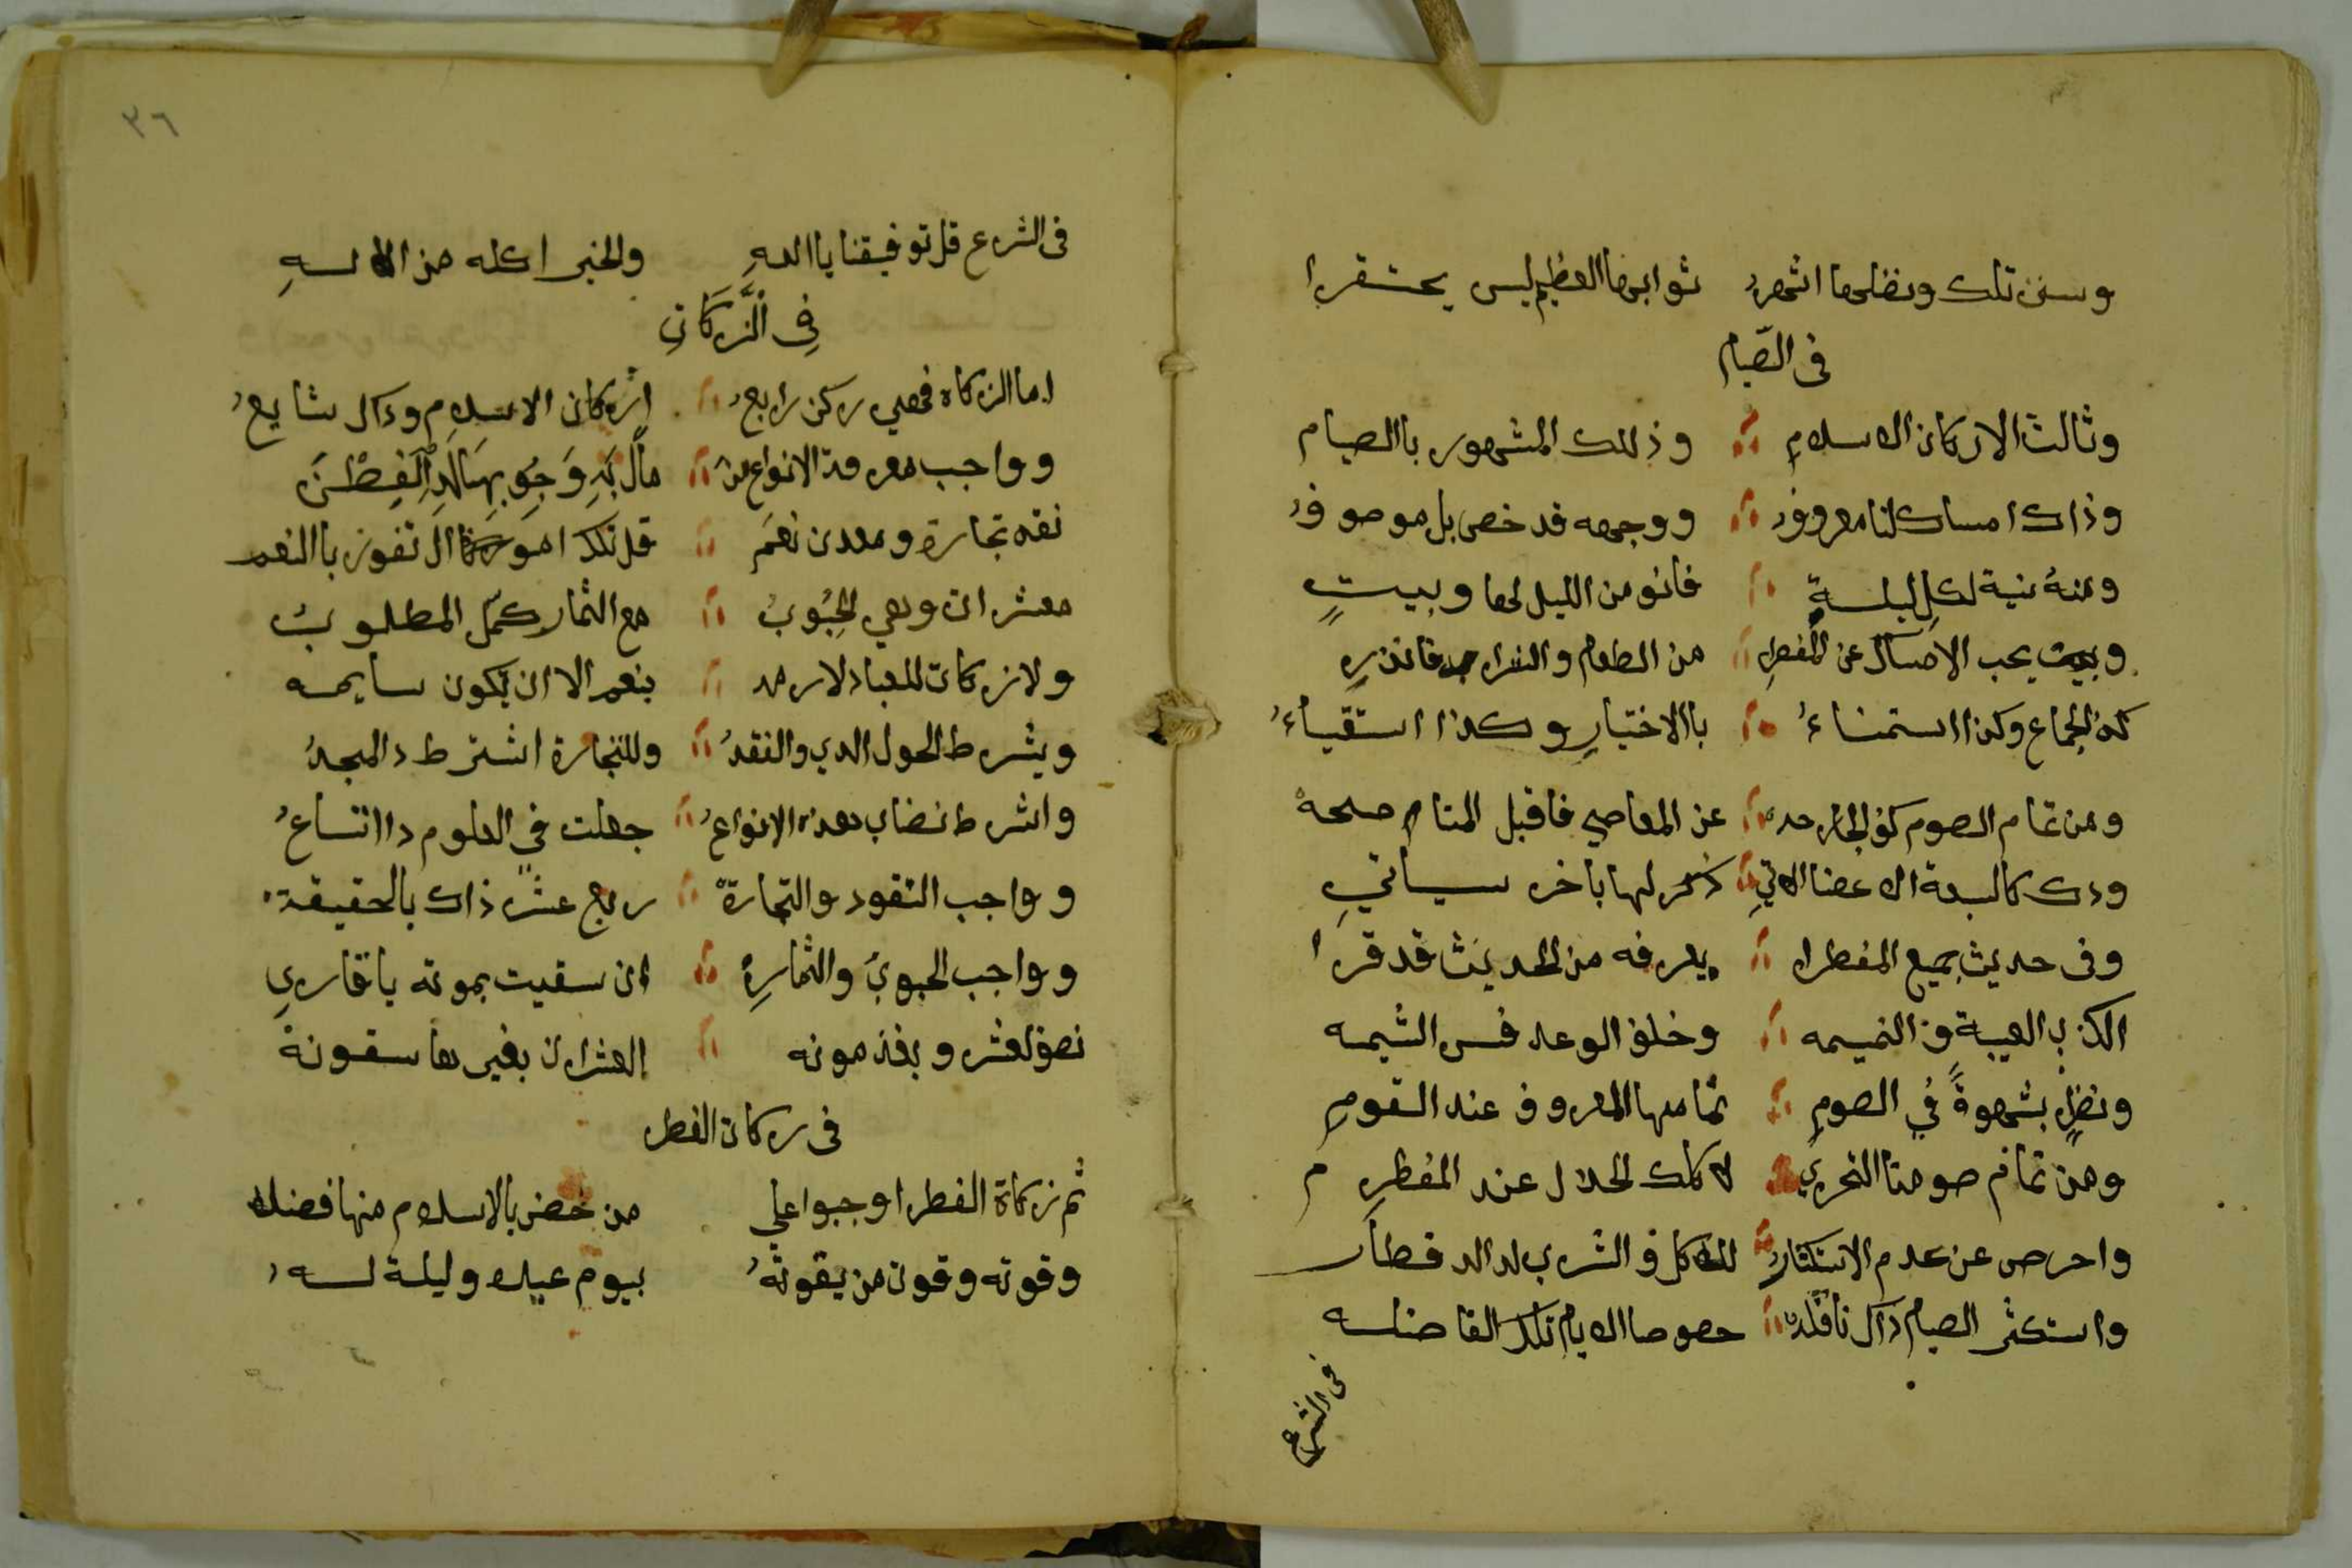 وسنن تلك ونفلها اشهرُ ثوابها العظيم ليس يحتقرا
فى الصّيام
وثالث الاركان الاسلامِ وذلك المشهور باالصيام
وذاك امساك لنا معروفُ ووجهه قد خص بل موصوفُ
ومنهُ نية لكل ليلةٍ فانو من الليل لها وبيتٍ
ويجب الامساك عن المفطرِ من الطعام والشراب فانذرِ
كذا الجماع وكذا استمناءُ باالاختيارِ وكذا استقياءُ
ومن تمام الصوم كف الجارحه عن المعاصي فاقبل المنام صلحهْ
كالسبعة الاعضا الاتيِ ذكر لها باخر سياتيِ
وفى حديث جميع المفطرا يعرفه من الحديث قد قرا
الكذب الغيبة والنميمه وخلف الوعد الشيمه
ونظرٍ بشهوةً في الصومِ تمامها المعروف عند القومِ
ومن تمام صومنا التحري لاكلك الحلال عند المفطرِ
واحرص عن عدم الاستكثارِ للاكل والشرب لدالافطار
واستكثر الصيام ذاك نافله خصوصا الايام تلك الفاضله
فى الشرع
٣٦
فى الشرع قل توفيقنا باللهِ والخير اكله من الالهِ
فِى الزَّكَاتِ
اما الزكاة فهي ركن رابعُ اركان الاسلامِ وذاك شايعُ
وواجب معرفة الانواع مال بَدِ وَجُوبِهَا الفِطْنَ
نقد تجارة ومعدن نعَم قل تلك اموال تفوز باالنعم
معشرات وهي الحُبُوبُ مع الثمار كمّل المطلوبُ
ولا زكات للعباد لازمه بنعم الا ان تكون سايمه
ويشرط الحول لدي والنقدُ وللتجارة اشترط دالمجدُ
واشرط نصاب هذه الانواعُ جعلت في العلوم دااتساعُ
وواجب النقود والتجارةّ ربع عشر ذاك بالحقيقة
وواجب الحبوبُ والثمارِ ان سقيت بمونه ياقاريِ
نصف العشر وبغير مونه العشر ان بغيرها سقونة
فى زكات الفطر
ثم زكاة الفطر اوجبوا علي من خص بالاسلام منها فضلا
وقوته وقوت من يقوتهُ بيوم عيد وليلة له